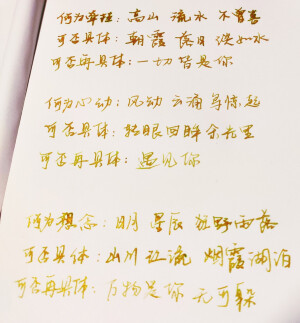 何为幸程：高山 流水 不曾喜
可否具体：朝霞 落日 淡如水
可否再具体：一切皆是你
何为心动：风动 云涌 导情起
可否具体：转眼回眸余光里
可否再具体：遇见你
何为想念：日月 星辰 旷野雨落
可否具体：山川 江流 烟霞湖泊
可否再具体：万物是你 无可躲